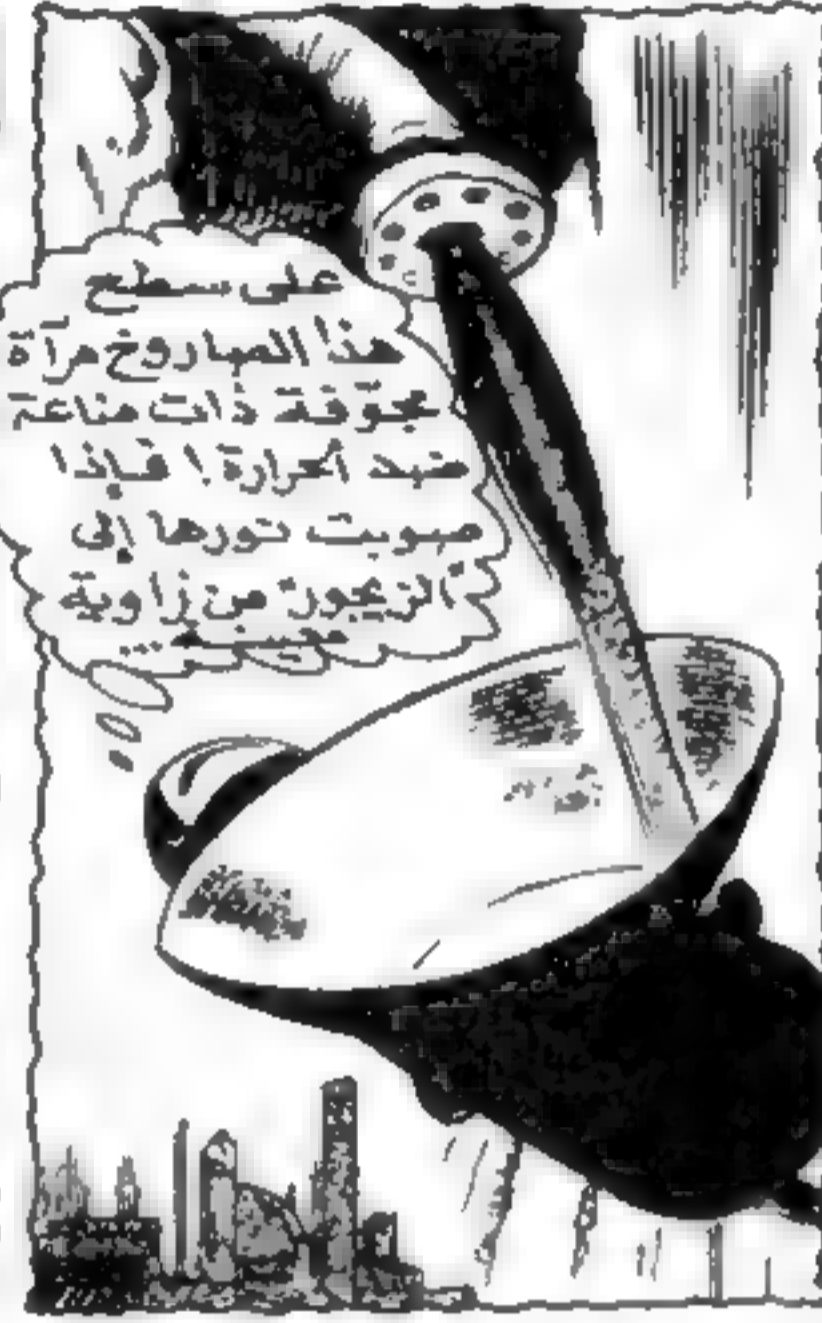 على سطح
هذا الصاروخ مرآة
مجوّفة ذات مناعة
ضد الحرارة! فإذا
صوبت نورها إلى
"الزيجور" من زاوية
معينة ...